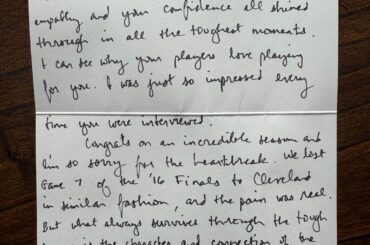 empathy and your confidence all shined
through in all the toughest moments.
I can see why your players love playing
for you. I was just so impressed every
time you were interviewed.
Congrats on an incredible season and
I'm so sorry for the heartbreak. We lost
Game 7 of the '16 Finals to Cleveland
in similar fashion, and the pain was real.
But what always survives through the tough
is the character and connection of the